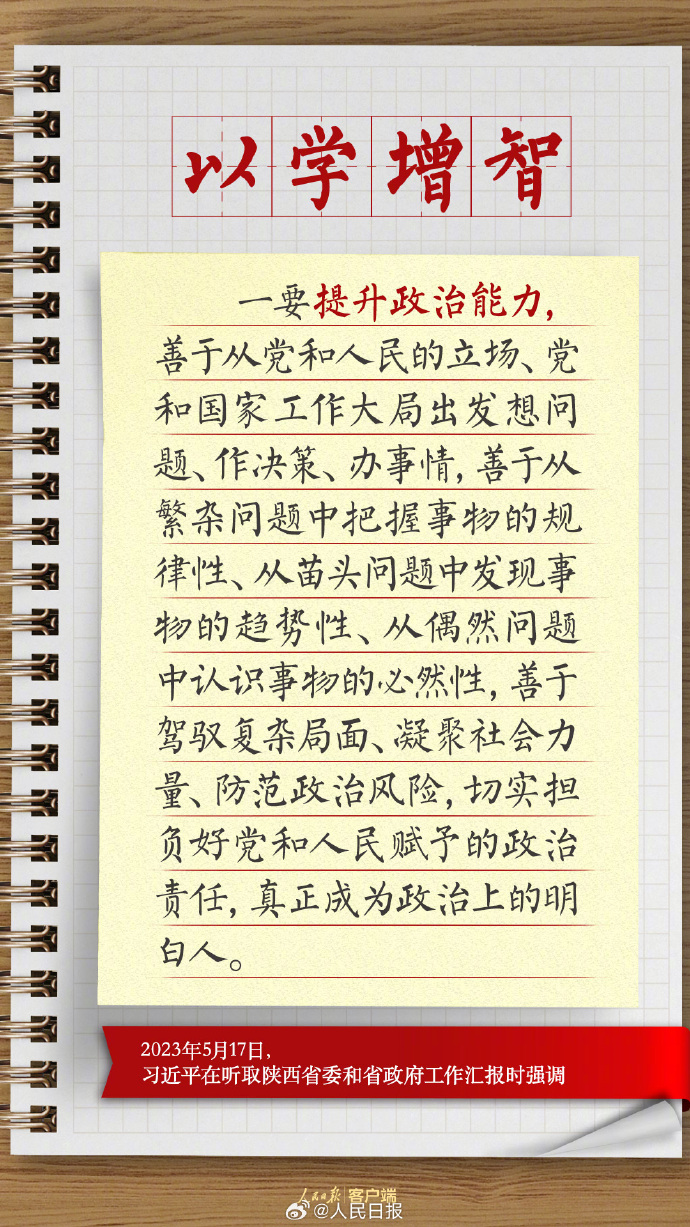 以学增智
一要提升政治能力，
善于从党和人民的立场、党
和国家工作大局出发想问
题、作决策、办事情，善于从
繁杂问题中把握事物的规
律性、从苗头问题中发现事
物的趋势性、从偶然问题
中认识事物的必然性，善于
驾驭复杂局面、凝聚社会力
量、防范政治风险，切实担
负好党和人民赋予的政治
责任，真正成为政治上的明
白人。
2023年5月17日，
习近平在听取陕西省委和省政府工作汇报时强调
人民日报 客户端
@人民日报